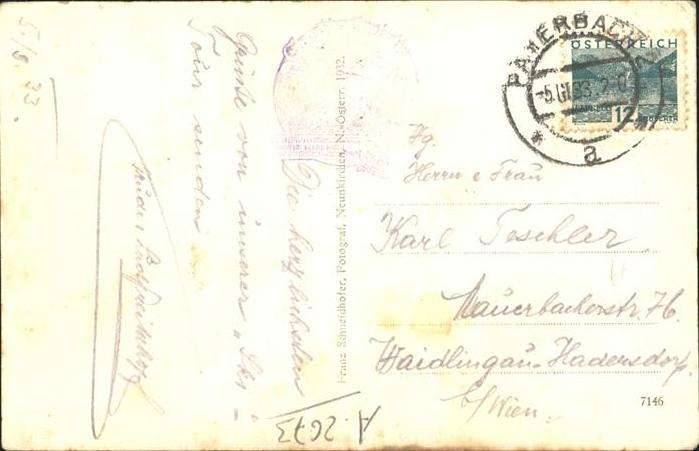 5./6. 33.
Die herzlichsten
Grüße von unserer „Ski-
Tour senden
Franz Schneidhofer, Fotograf, Neunkirchen, N.-Österr. 1932.
PAYERBACH
-5.VI.33
* a
ÖSTERREICH
12
Herrn e Frau
Karl Teschler
Mauerbacherstr. 76.
Haidlingau-Hadersdorf
b/Wien.
7146
A. 2673